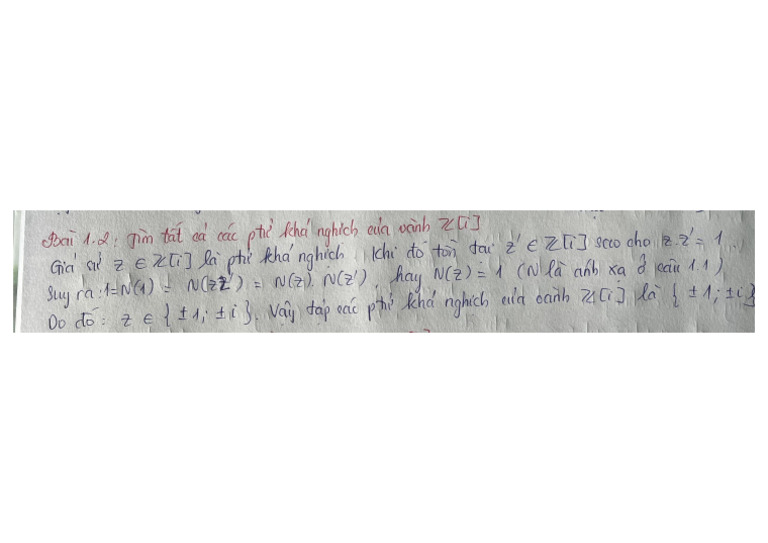 Bài 1.2: Tìm tất cả các ptử khả nghịch của vành Z[i]
Giả sử z ∈ Z[i] là ptử khả nghịch. Khi đó tồn tại z' ∈ Z[i] sao cho z.z' = 1.
Suy ra: 1 = N(1) = N(zz') = N(z).N(z'), hay N(z) = 1 (N là ánh xạ ở câu 1.1)
Do đó: z ∈ {±1; ±i}. Vậy tập các ptử khả nghịch của vành Z[i] là {±1; ±i}